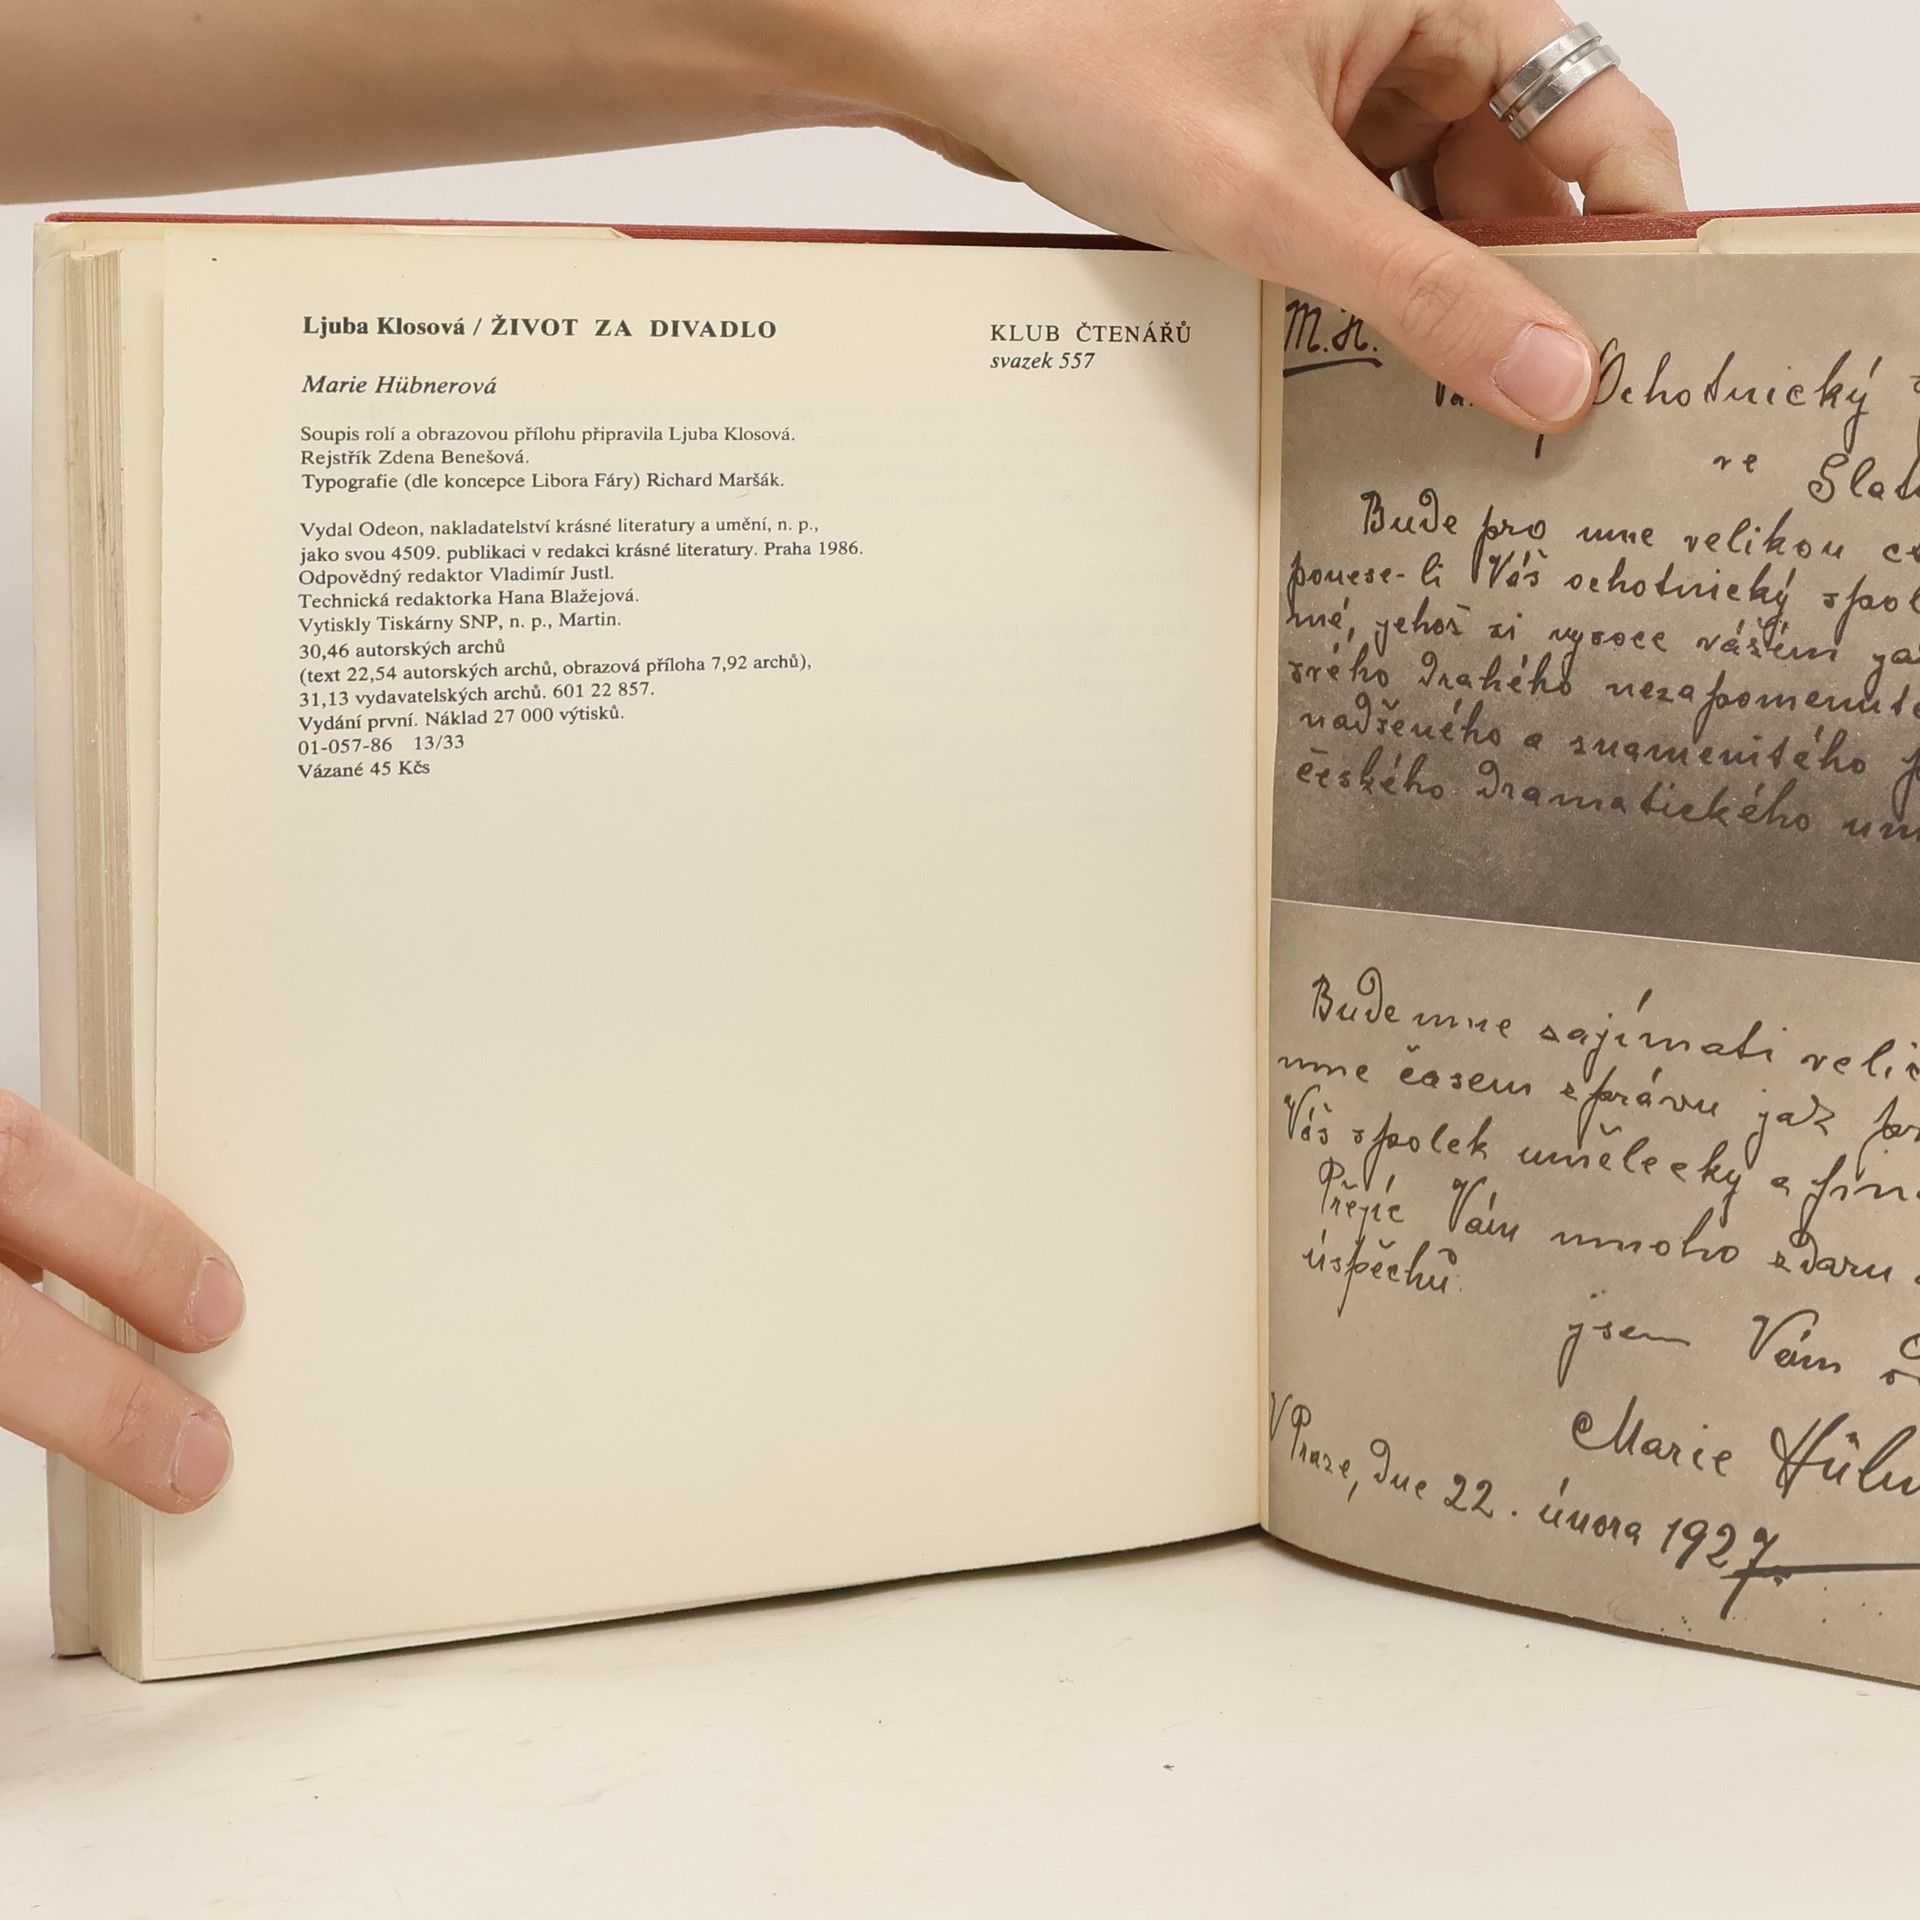 Ljuba Klosová / ŽIVOT ZA DIVADLO
Marie Hübnerová
Soupis rolí a obrazovou přílohu připravila Ljuba Klosová.
Rejstřík Zdena Benešová.
Typografie (dle koncepce Libora Fáry) Richard Maršák.
Vydal Odeon, nakladatelství krásné literatury a umění, n. p.,
jako svou 4509. publikaci v redakci krásné literatury. Praha 1986.
Odpovědný redaktor Vladimír Justl.
Technická redaktorka Hana Blažejová.
Vytiskly Tiskárny SNP, n. p., Martin.
30,46 autorských archů
(text 22,54 autorských archů, obrazová příloha 7,92 archů),
31,13 vydavatelských archů. 601 22 857.
Vydání první. Náklad 27 000 výtisků.
01-057-86 13/33
Vázané 45 Kčs
KLUB ČTENÁŘŮ
svazek 557
M. H.
Ochotnický
ve
Bude pro mne velikou
ponese-li Váš ochotnický
mé, jehož si vysoce vážím
svého drahého
nadšeného a znamenitého
českého dramatického
Bude mne zajímati
mne časem zprávu jak
Váš spolek umělecky a
Přejíc Vám mnoho zdaru
úspěchů.
jsem Vám
Marie
V Praze, dne 22. února 1927.